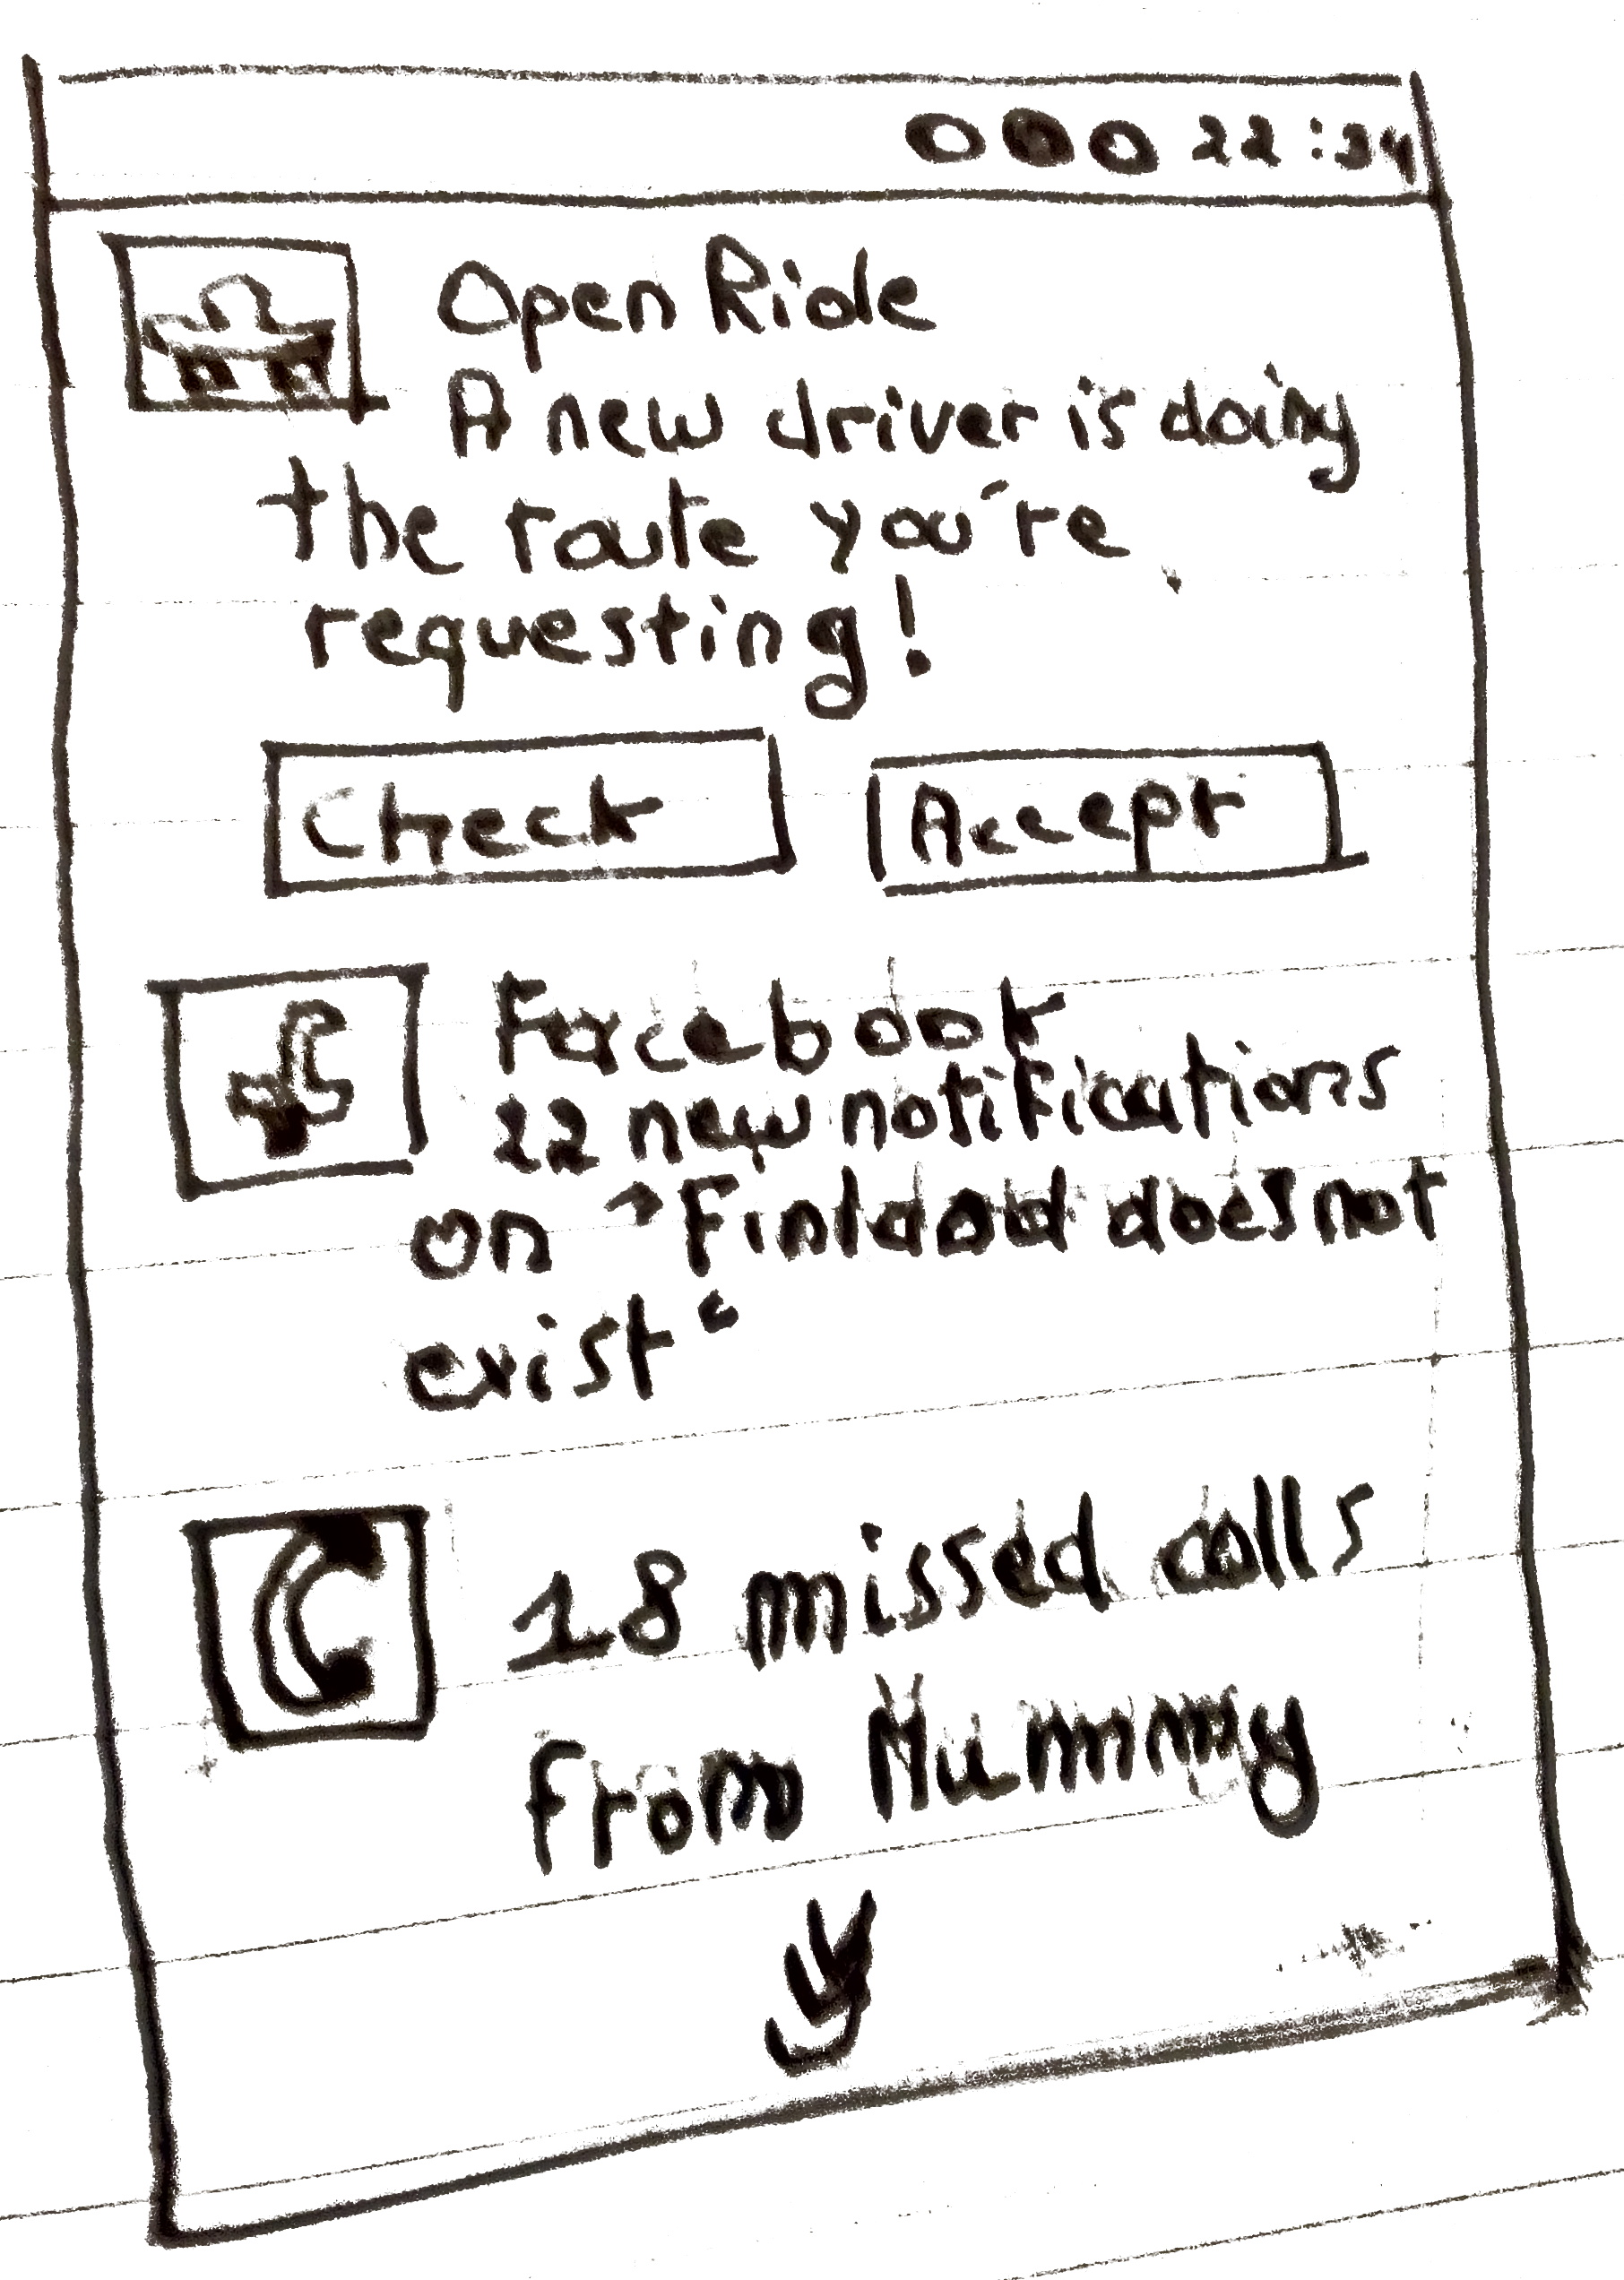 22:34
Open Ride
A new driver is doing
the route you're
requesting!
Check Accept
f Facebook
22 new notifications
on "Finland does not
exist"
18 missed calls
from Mummy